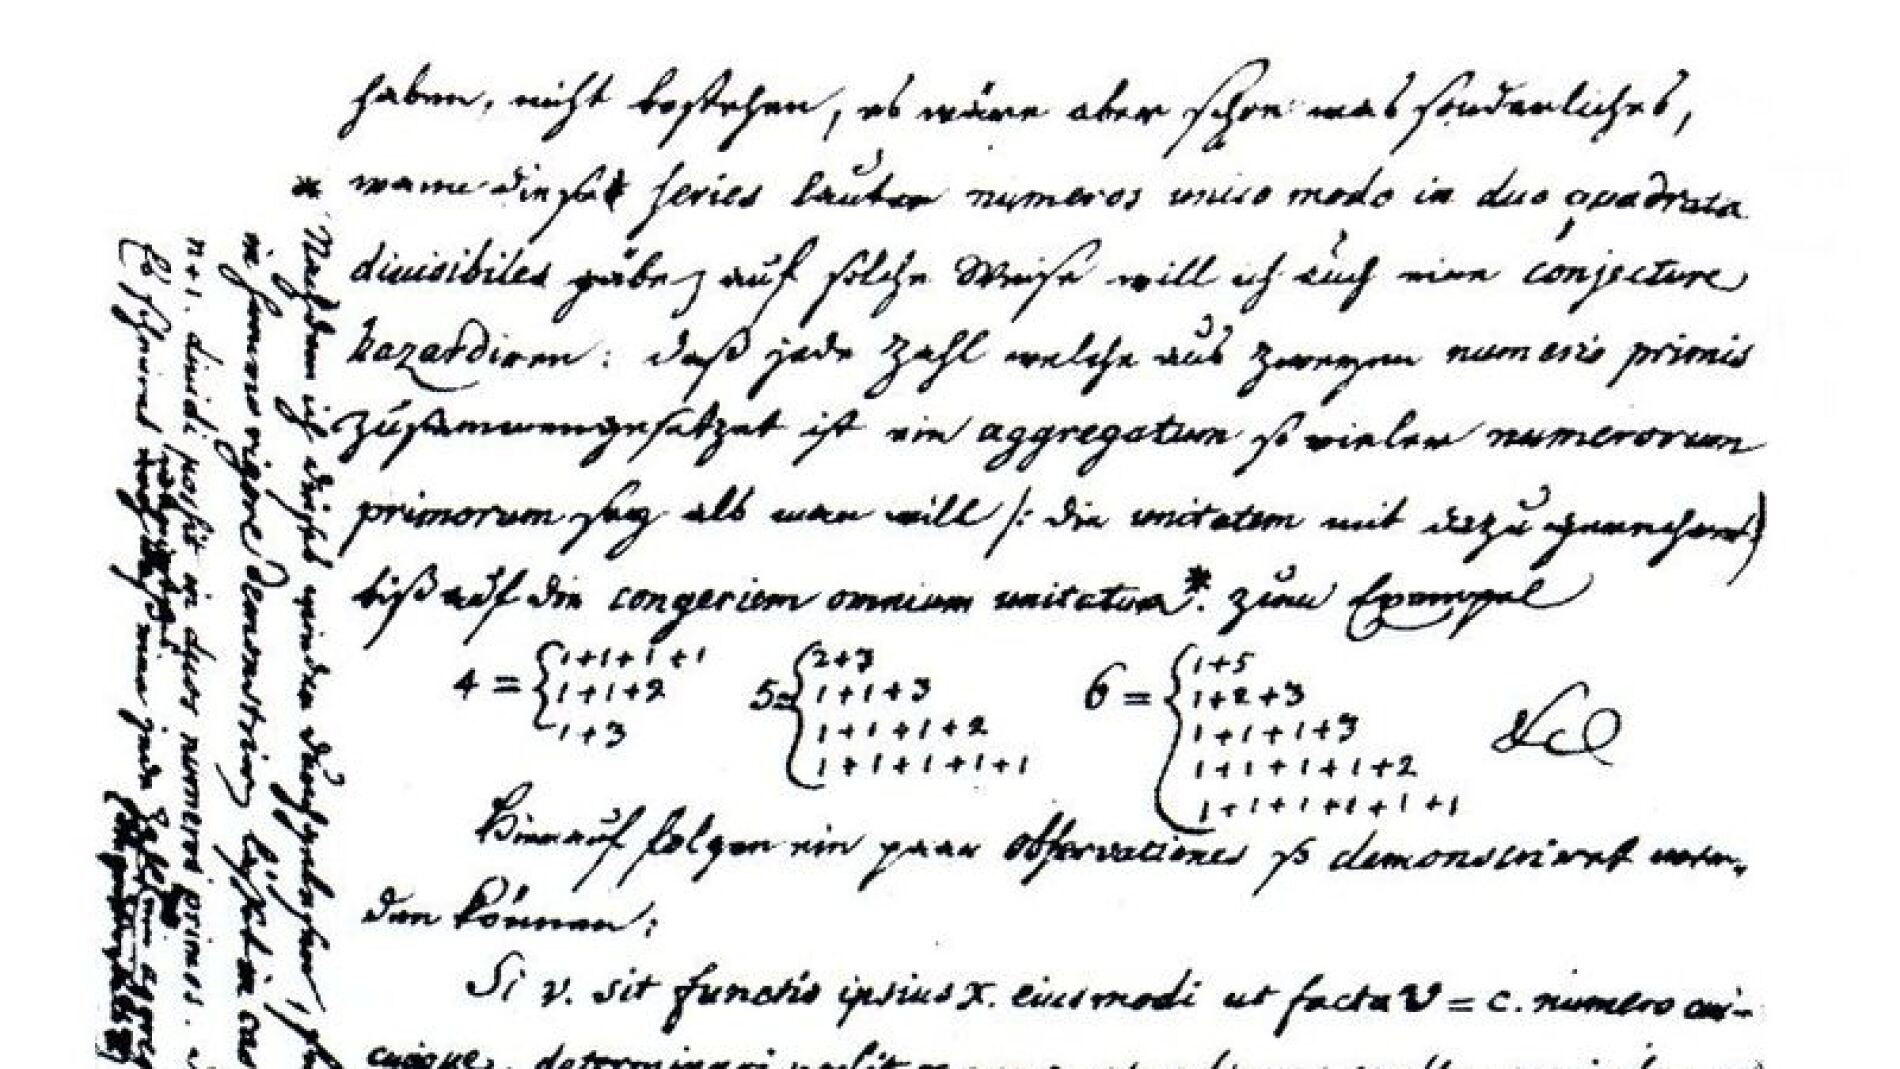 haben, nicht bestehen, es wäre aber schon was sonderliches,
wann diese series lauter numeros unico modo in duo quadrata
divisibiles gäbe auf solche Weise will ich auch eine conjecture
hazardiren: daß jede Zahl welche aus zweyen numeris primis
zusammengesetzet ist ein aggregatum so vieler numerorum
primorum sey als man will /: die unitatem mit dazu gerechnet)
biß auf die congeriem omnium unitatum*. zum Exempel
4 = { 1+1+1+1
1+1+2
1+3
5 = { 2+3
1+1+3
1+1+1+2
1+1+1+1+1
6 = { 1+5
1+2+3
1+1+1+3
1+1+1+1+2
1+1+1+1+1+1
&c
Hierauf folgen ein paar observationes so demonstriret wer-
den können:
Si v. sit functio ipsius x. eiusmodi ut facta v = c. numero cui-
cunque, determinari possit x
* Nachdem ich dieses wieder durchgelesen,
in summo rigore demonstriren läßet in cas
n+1. dividi possit in duos numeros primos.
Es scheinet daß man jede Zahl